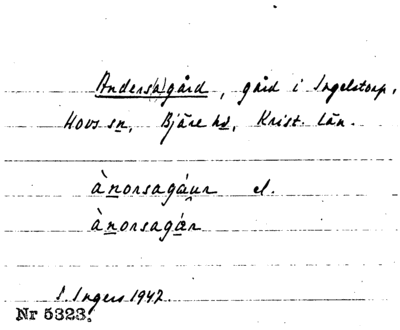 Anders(h)gård, gård i Ingelstorp,
Hovs sn, Bjäre hd, Krist. län.
ànorsagáu̯r el.
ànorsagár
S. Ingers 1942.
Nr 5323.